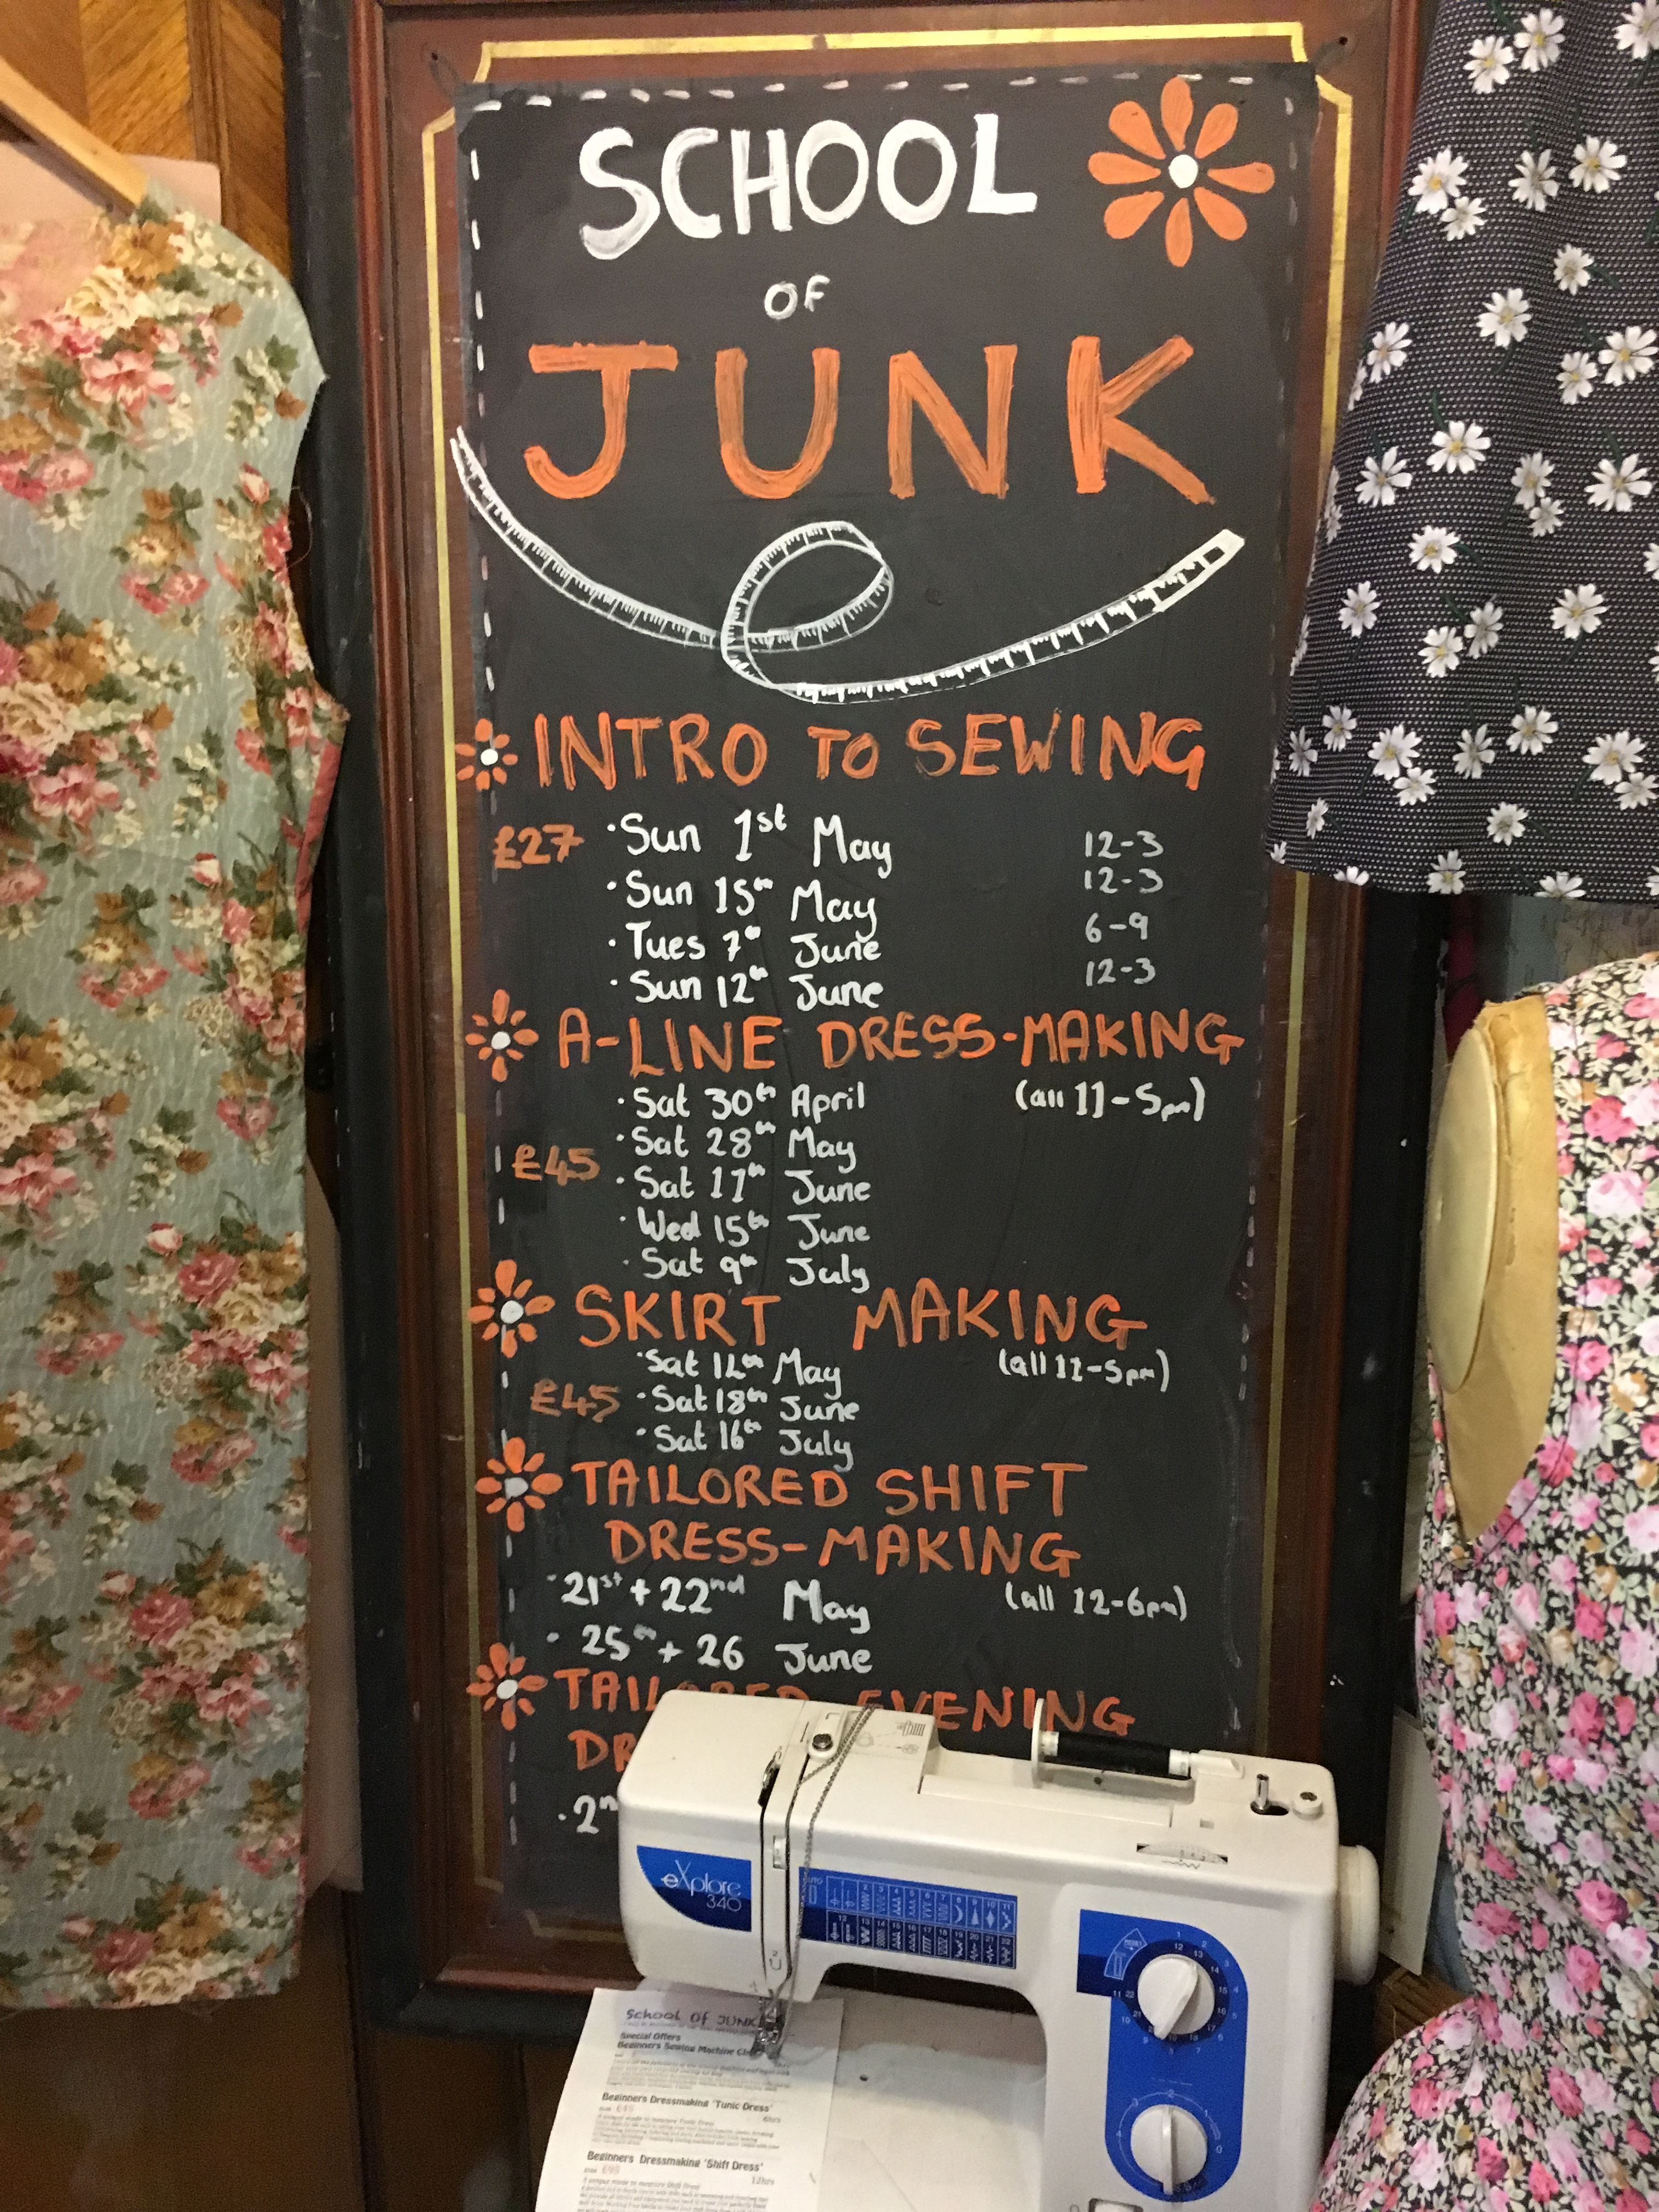 SCHOOL
OF
JUNK
INTRO TO SEWING
£27 · Sun 1st May 12-3
· Sun 15th May 12-3
· Tues 7th June 6-9
· Sun 12th June 12-3
A-LINE DRESS-MAKING
· Sat 30th April (all 11-5pm)
· Sat 28th May
£45 · Sat 11th June
· Wed 15th June
· Sat 9th July
SKIRT MAKING
· Sat May (all 11-5pm)
£45 · Sat 18th June
· Sat 16th July
TAILORED SHIFT
DRESS-MAKING
· 21st + 22nd May (all 12-6pm)
· 25th + 26 June
TAILORED EVENING
DR
· 2n
eXplore
340
SCHOOL OF JUNK
Special Offers
Beginners Sewing Machine
Beginners Dressmaking 'Tunic Dress'
6hrs
Beginners Dressmaking 'Shift Dress'
12hrs